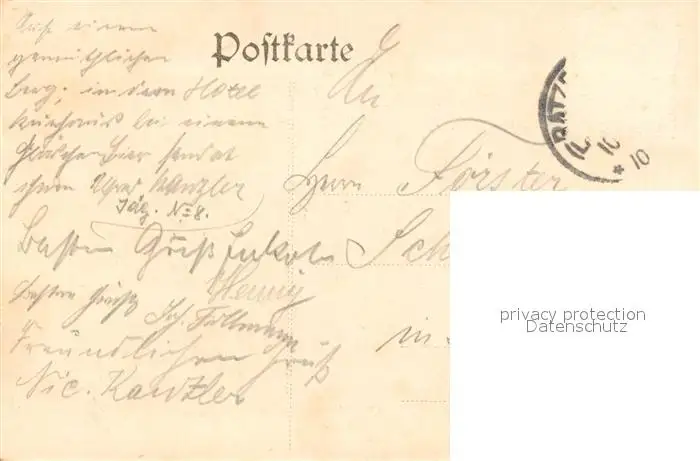 Postkarte
Auf einem
gemüthlichen
Berg, in dem Hotel
Kurhaus bei einem
Gläschen Bier sendet
Kanzler
Jäg. No 8.
Besten Gruß
Henny
Besten Gruß
Joh. Follmann
Freundlichen Gruß
Nic. Kanzler
An
Herrn Förster
Sch
in
RATZ
10
* 10
privacy protection
Datenschutz